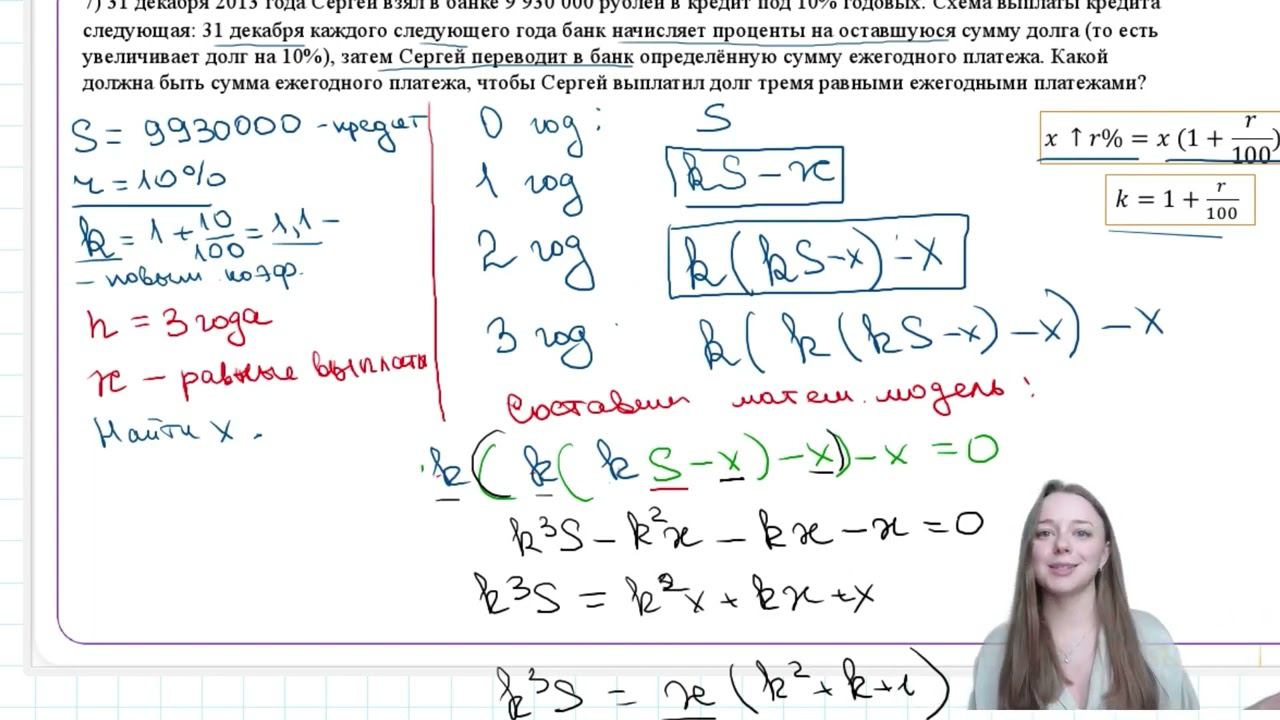 7) 31 декабря 2013 года Сергей взял в банке 9 930 000 рублей в кредит под 10% годовых. Схема выплаты кредита
следующая: 31 декабря каждого следующего года банк начисляет проценты на оставшуюся сумму долга (то есть
увеличивает долг на 10%), затем Сергей переводит в банк определённую сумму ежегодного платежа. Какой
должна быть сумма ежегодного платежа, чтобы Сергей выплатил долг тремя равными ежегодными платежами?
S = 9930000 - кредит
r = 10%
k = 1 + 10/100 = 1,1 -
- повыш. коэф.
n = 3 года
x - равные выплаты
Найти x.
0 год: S
1 год kS - x
2 год k(kS-x) - x
3 год: k(k(kS-x)-x) - x
Составим матем. модель:
k(k(kS-x)-x)-x = 0
k³S - k²x - kx - x = 0
k³S = k²x + kx + x
k³S = x(k²+k+1)
x ↑ r% = x (1 + r/100)
k = 1 + r/100